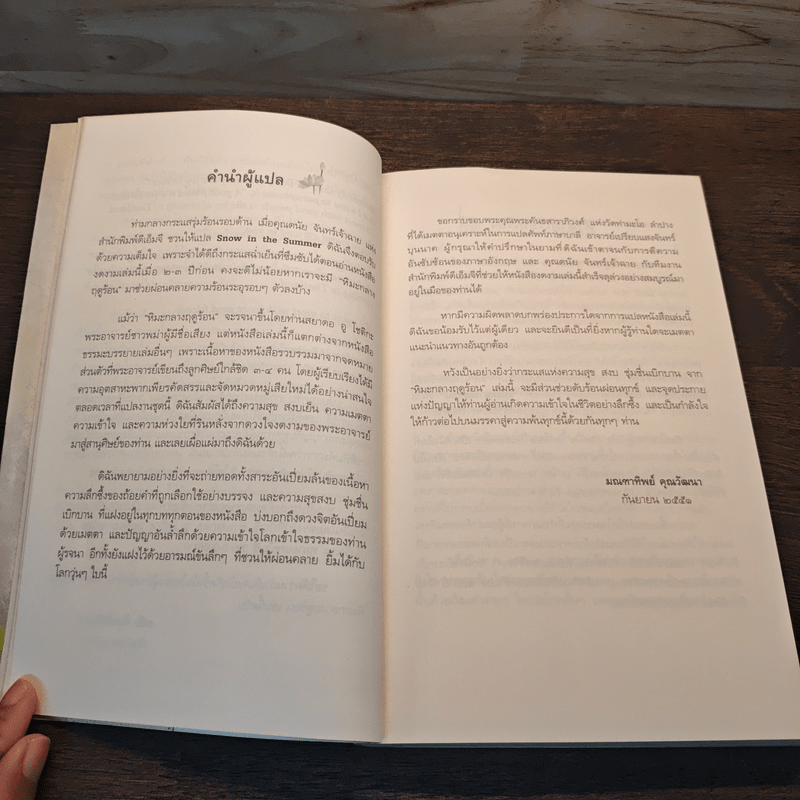 คำนำผู้แปล
ท่ามกลางกระแสรุ่มร้อนรอบด้าน เมื่อคุณดนัย จันทร์เจ้าฉาย แห่ง
สำนักพิมพ์ดีเอ็มจี ชวนให้แปล Snow in the Summer ดิฉันจึงตอบรับ
ด้วยความเต็มใจ เพราะจำได้ดีถึงกระแสฉ่ำเย็นที่ซึมซับได้ตอนอ่านหนังสือ
งดงามเล่มนี้เมื่อ ๒-๓ ปีก่อน คงจะดีไม่น้อยหากเราจะมี "หิมะกลาง
ฤดูร้อน" มาช่วยผ่อนคลายความร้อนระอุรอบๆ ตัวลงบ้าง
แม้ว่า "หิมะกลางฤดูร้อน" จะรจนาขึ้นโดยท่านสยาดอ อู โชติกะ
พระอาจารย์ชาวพม่าผู้มีชื่อเสียง แต่หนังสือเล่มนี้ก็แตกต่างจากหนังสือ
ธรรมะบรรยายเล่มอื่นๆ เพราะเนื้อหาของหนังสือรวบรวมมาจากจดหมาย
ส่วนตัวที่พระอาจารย์เขียนถึงลูกศิษย์ใกล้ชิด ๓-๔ คน โดยผู้เรียบเรียงได้มี
ความอุตสาหะพากเพียรคัดสรรและจัดหมวดหมู่เสียใหม่ได้อย่างน่าสนใจ
ตลอดเวลาที่แปลงานชุดนี้ ดิฉันสัมผัสได้ถึงความสุข สงบเย็น ความเมตตา
ความเข้าใจ และความห่วงใยที่รินหลั่งจากดวงใจงดงามของพระอาจารย์
มาสู่สานุศิษย์ของท่าน และเลยเผื่อแผ่มาถึงดิฉันด้วย
ดิฉันพยายามอย่างยิ่งที่จะถ่ายทอดทั้งสาระอันเปี่ยมล้นของเนื้อหา
ความลึกซึ้งของถ้อยคำที่ถูกเลือกใช้อย่างบรรจง และความสุขสงบ ชุ่มชื่น
เบิกบาน ที่แฝงอยู่ในทุกบททุกตอนของหนังสือ บ่งบอกถึงดวงจิตอันเปี่ยม
ด้วยเมตตา และปัญญาอันล้ำลึกด้วยความเข้าใจโลกเข้าใจธรรมของท่าน
ผู้รจนา อีกทั้งยังแฝงไว้ด้วยอารมณ์ขันลึกๆ ที่ชวนให้ผ่อนคลาย ยิ้มได้กับ
โลกวุ่นๆ ใบนี้
ขอกราบขอบพระคุณพระคันธสาราภิวงศ์ แห่งวัดท่ามะโอ ลำปาง
ที่ได้เมตตาอนุเคราะห์ในการแปลศัพท์ภาษาบาลี อาจารย์เปรียบแสงจันทร์
บุนนาค ผู้กรุณาให้คำปรึกษาในยามที่ดิฉันเข้าตาจนกับการตีความ
อันซับซ้อนของภาษาอังกฤษ และ คุณดนัย จันทร์เจ้าฉาย กับทีมงาน
สำนักพิมพ์ดีเอ็มจีที่ช่วยให้หนังสืองดงามเล่มนี้สำเร็จลุล่วงอย่างสมบูรณ์มา
อยู่ในมือของท่านได้
หากมีความผิดพลาดบกพร่องประการใดจากการแปลหนังสือเล่มนี้
ดิฉันขอน้อมรับไว้แต่ผู้เดียว และจะยินดีเป็นที่ยิ่งหากผู้รู้ท่านใดจะเมตตา
แนะนำแนวทางอันถูกต้อง
หวังเป็นอย่างยิ่งว่ากระแสแห่งความสุข สงบ ชุ่มชื่นเบิกบาน จาก
"หิมะกลางฤดูร้อน" เล่มนี้ จะมีส่วนช่วยดับร้อนผ่อนทุกข์ และจุดประกาย
แห่งปัญญาให้ท่านผู้อ่านเกิดความเข้าใจในชีวิตอย่างลึกซึ้ง และเป็นกำลังใจ
ให้ก้าวต่อไปบนมรรคาสู่ความพ้นทุกข์นี้ด้วยกันทุกๆ ท่าน
มณฑาทิพย์ คุณวัฒนา
กันยายน ๒๕๕๑